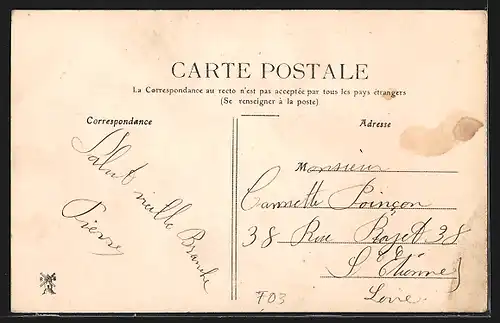 CARTE POSTALE
La Correspondance au recto n'est pas acceptée par tous les pays étrangers
(Se renseigner à la poste)
Correspondance
Adresse
Salut vieille Branche
Pierre
Monsieur
Poinçon
38 Rue 38
St Etienne
Loire
F03